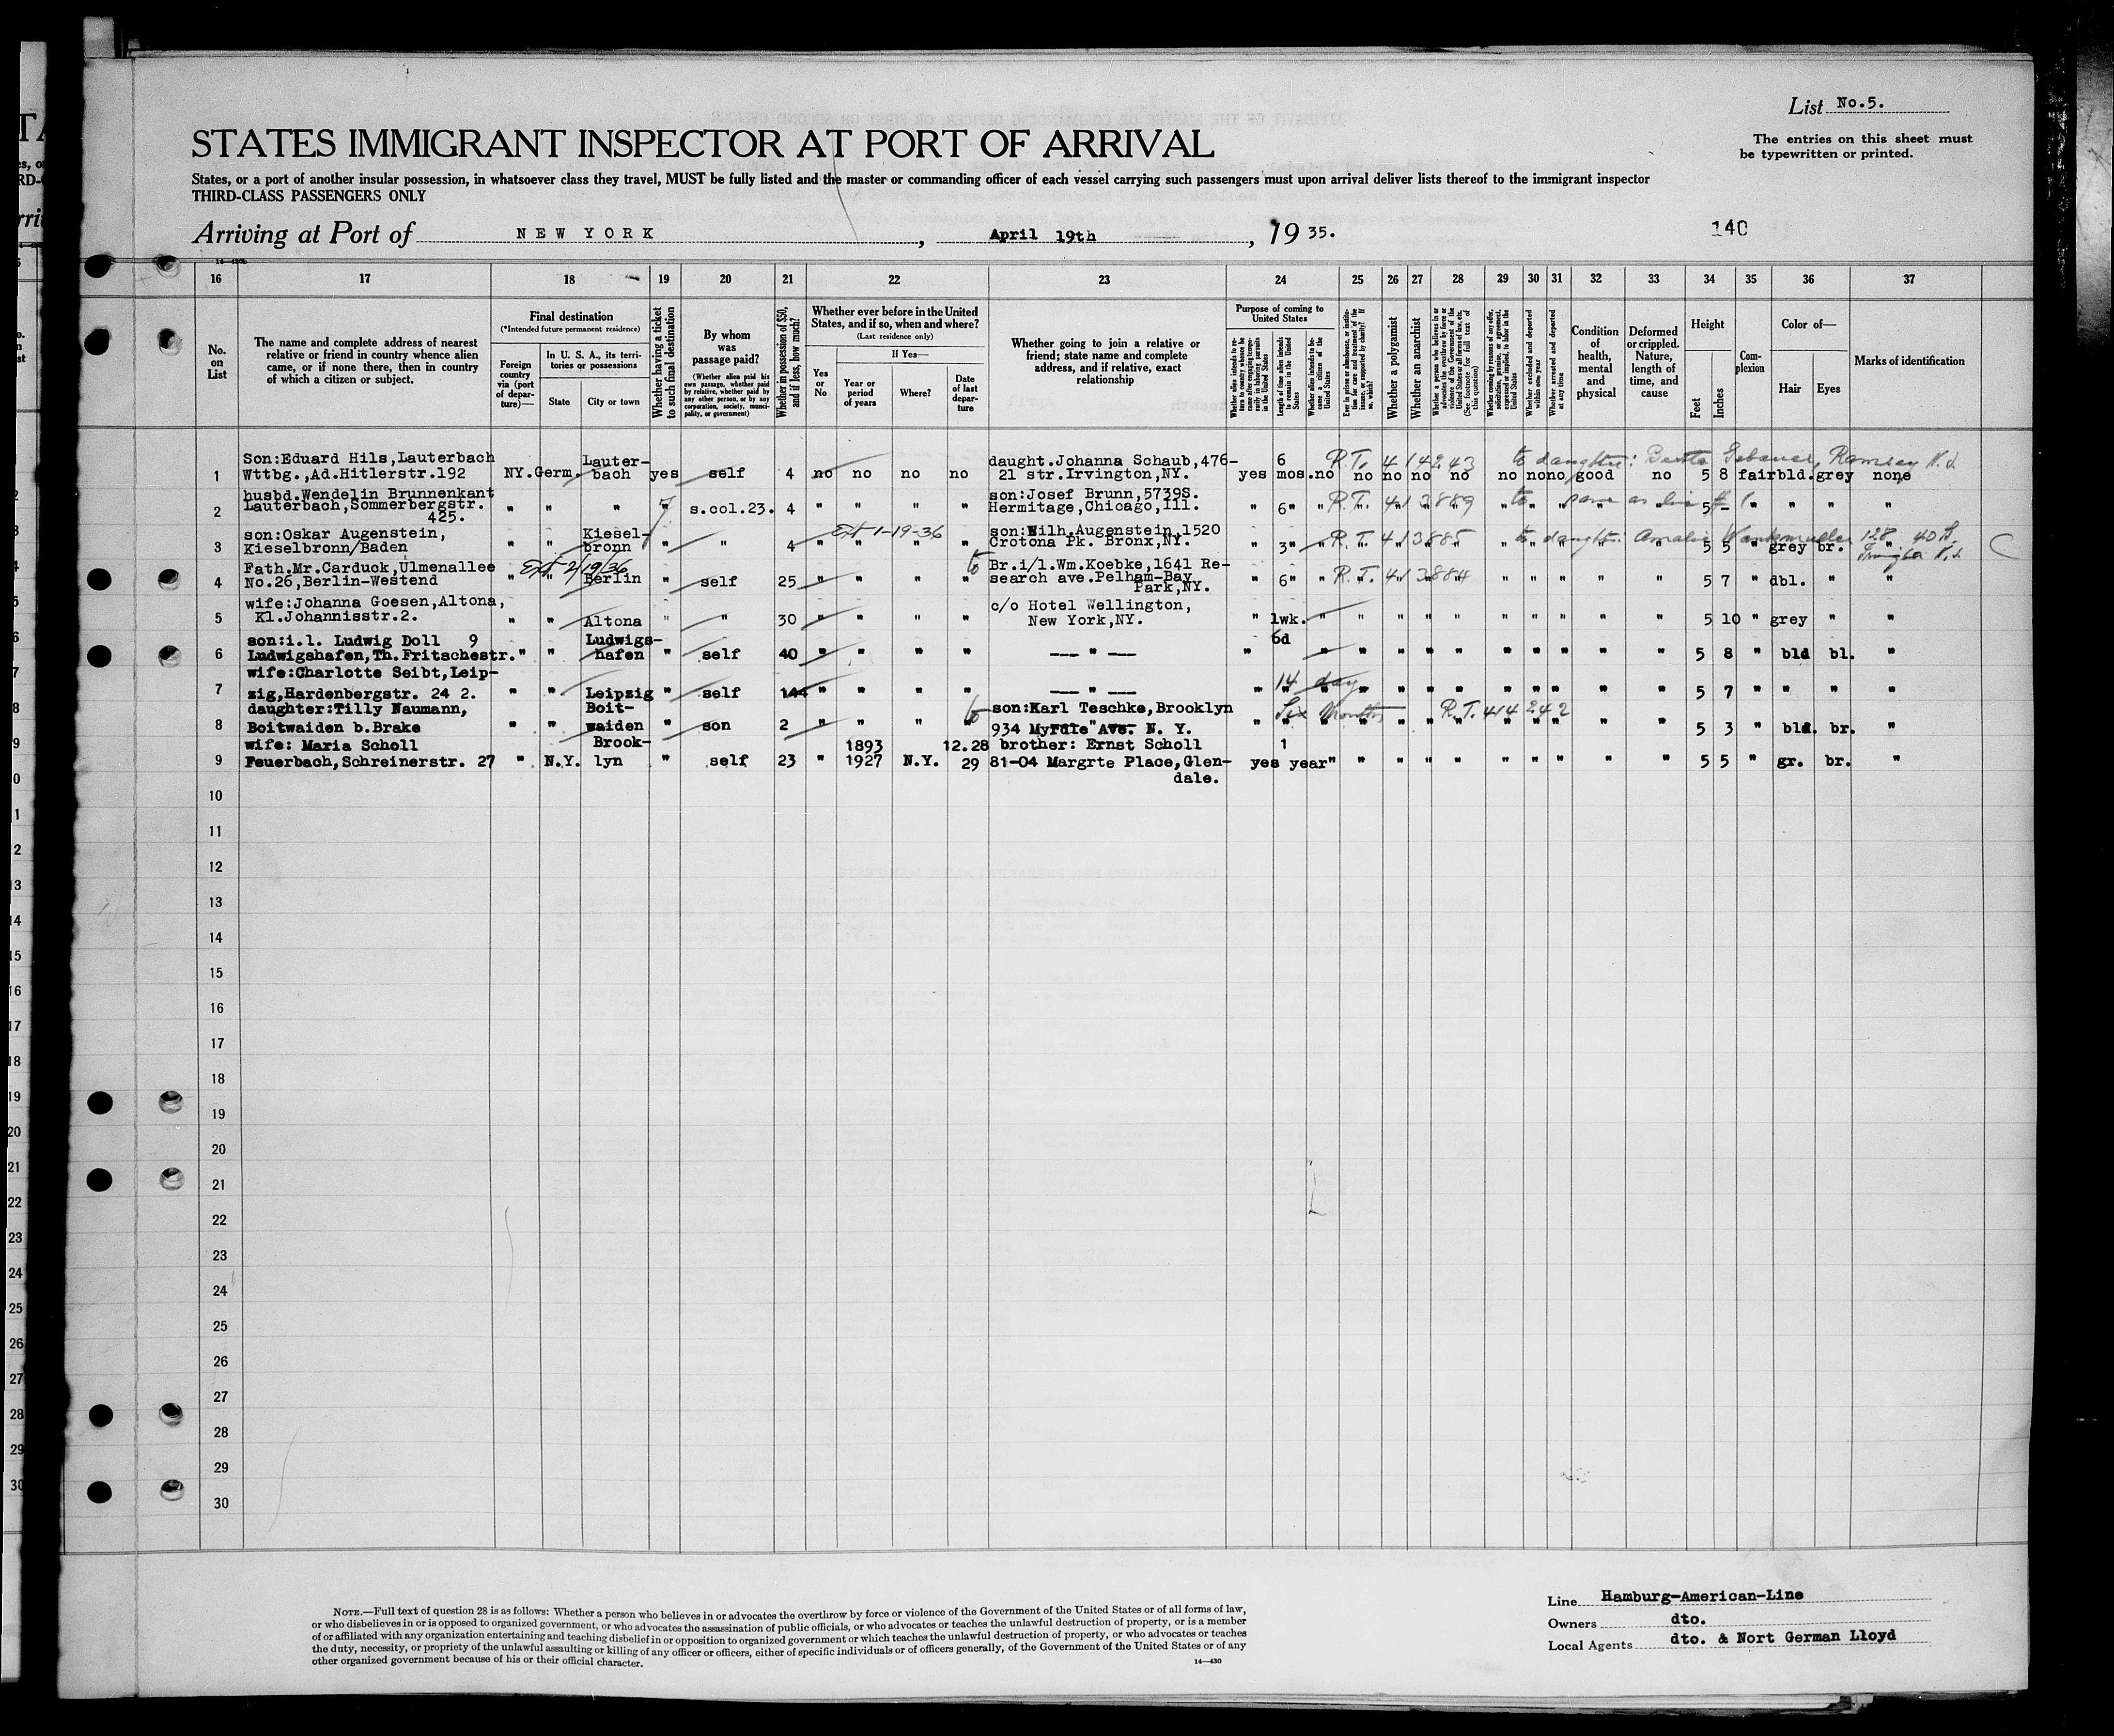 List No.5.
The entries on this sheet must
be typewritten or printed.
STATES IMMIGRANT INSPECTOR AT PORT OF ARRIVAL
States, or a port of another insular possession, in whatsoever class they travel, MUST be fully listed and the master or commanding officer of each vessel carrying such passengers must upon arrival deliver lists thereof to the immigrant inspector
THIRD-CLASS PASSENGERS ONLY
Arriving at Port of NEW YORK, April 19th, 1935.
140
16 17 18 19 20 21 22 23 24 25 26 27 28 29 30 31 32 33 34 35 36 37
No. on List
The name and complete address of nearest relative or friend in country whence alien came, or if none there, then in country of which a citizen or subject.
Final destination
(*Intended future permanent residence)
Foreign country via (port of departure)—
In U. S. A., its territories or possessions
State
City or town
Whether having a ticket to such final destination
By whom was passage paid?
(Whether alien paid his own passage, whether paid by relative, whether paid by any other person, or by any corporation, society, municipality, or government)
Whether in possession of $50, and if less, how much?
Whether ever before in the United States, and if so, when and where?
(Last residence only)
Yes or No
If Yes—
Year or period of years
Where?
Date of last departure
Whether going to join a relative or friend; state name and complete address, and if relative, exact relationship
Purpose of coming to United States
Length of time alien intends to remain in the United States
Whether alien intends to become a citizen of the United States
Whether a polygamist
Whether an anarchist
Condition of health, mental and physical
Deformed or crippled. Nature, length of time, and cause
Height
Feet
Inches
Complexion
Color of—
Hair
Eyes
Marks of identification
Son:Eduard Hils,Lauterbach Lauter- daught.Johanna Schaub,476- 6 R.T. 414243 to daughter: Ramsey N.J.
1 Wttbg.,Ad.Hitlerstr.192 NY. Germ. bach yes self 4 no no no no 21 str.Irvington,NY. yes mos. no no no no no no no no good no 5 8 fair bld. grey none
husbd.Wendelin Brunnenkant son:Josef Brunn,5739S. R.T. 413889 to same as line # 1
2 Lauterbach,Sommerbergstr. " " " " s.col.23. 4 " " " " Hermitage,Chicago,Ill. " 6" " " " " " " " " " " 5 - " " " "
425.
son:Oskar Augenstein, Kiesel- Ext 1-19-36 son:Wilh.Augenstein,1520 R.T. 413885 to daught: Amalie 128 40 St.
3 Kieselbronn/Baden " " bronn " " 4 " " " " Crotona Pk. Bronx,NY. " 3" " " " " " " " " " " 5 5 " grey br. "
Fath.Mr.Carduck,Ulmenallee Ext 2/19/36 to Br.i/l.Wm.Koebke,1641 Re- R.T. 413884
4 No.26,Berlin-Westend Berlin " self 25 " " " " search ave.Pelham-Bay " 6" " " " " " " " " " " 5 7 " dbl. " "
Park,NY.
wife:Johanna Goesen,Altona, c/o Hotel Wellington,
5 Kl.Johannisstr.2. " " Altona " " 30 " " " " New York,NY. " 1wk. " " " " " " " " " " 5 10 " grey " "
son:i.l. Ludwig Doll 9 Ludwigs- 6d
6 Ludwigshafen,Th.Fritschestr. " " hafen " self 40 " " " " — " — " " " " " " " " " " " 5 8 " bld bl. "
wife:Charlotte Seibt,Leip- 14 day
7 zig,Hardenbergstr. 24 2. " " Leipzig " self 144 " " " " — " — " " " " " " " " " " " " 5 7 " " " "
daughter:Tilly Naumann, Boit- to son:Karl Teschke,Brooklyn Six Months R.T. 414242
8 Boitwaiden b.Brake " " waiden " son 2 " " " " 934 Myrdle Ave. N. Y. " " " " " " " " " " " " 5 3 " bld. br. "
wife: Maria Scholl Brook- 1893 12.28 brother: Ernst Scholl 1
9 Feuerbach,Schreinerstr. 27 " N.Y. lyn " self 23 " 1927 N.Y. 29 81-04 Margrte Place,Glen- yes year " " " " " " " " " " 5 5 " gr. br. "
dale.
10
11
12
13
14
15
16
17
18
19
20
21
22
23
24
25
26
27
28
29
30
NOTE.—Full text of question 28 is as follows: Whether a person who believes in or advocates the overthrow by force or violence of the Government of the United States or of all forms of law,
or who disbelieves in or is opposed to organized government, or who advocates the assassination of public officials, or who advocates or teaches the unlawful destruction of property, or is a member
of or affiliated with any organization entertaining and teaching disbelief in or opposition to organized government or which teaches the unlawful destruction of property, or who advocates or teaches
the duty, necessity, or propriety of the unlawful assaulting or killing of any officer or officers, either of specific individuals or of officers generally, of the Government of the United States or of any
other organized government because of his or their official character.
14—430
Line Hamburg-American-Line
Owners dto.
Local Agents dto. & Nort German Lloyd